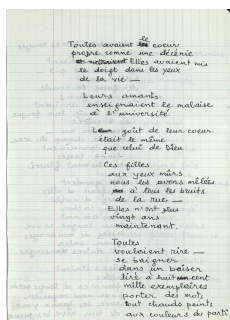 Toutes avaient le coeur
propre comme une décénie
Elles avaient mis
le doigt dans les yeux
de la vie —
Leurs amants
enseignaient le malaise
à l'université
Le goût de leur coeur
était le même
que celui de Dieu
Ces filles
aux yeux mûrs
nous les avons mêlées
à tous les bruits
de la rue —
Elles n'ont plus
vingt ans
maintenant.
Toutes
voulaient rire —
se baigner
dans un baiser
dire à huit cent
mille exemplaires
porter des mots
tout chauds peints
aux couleurs du parti